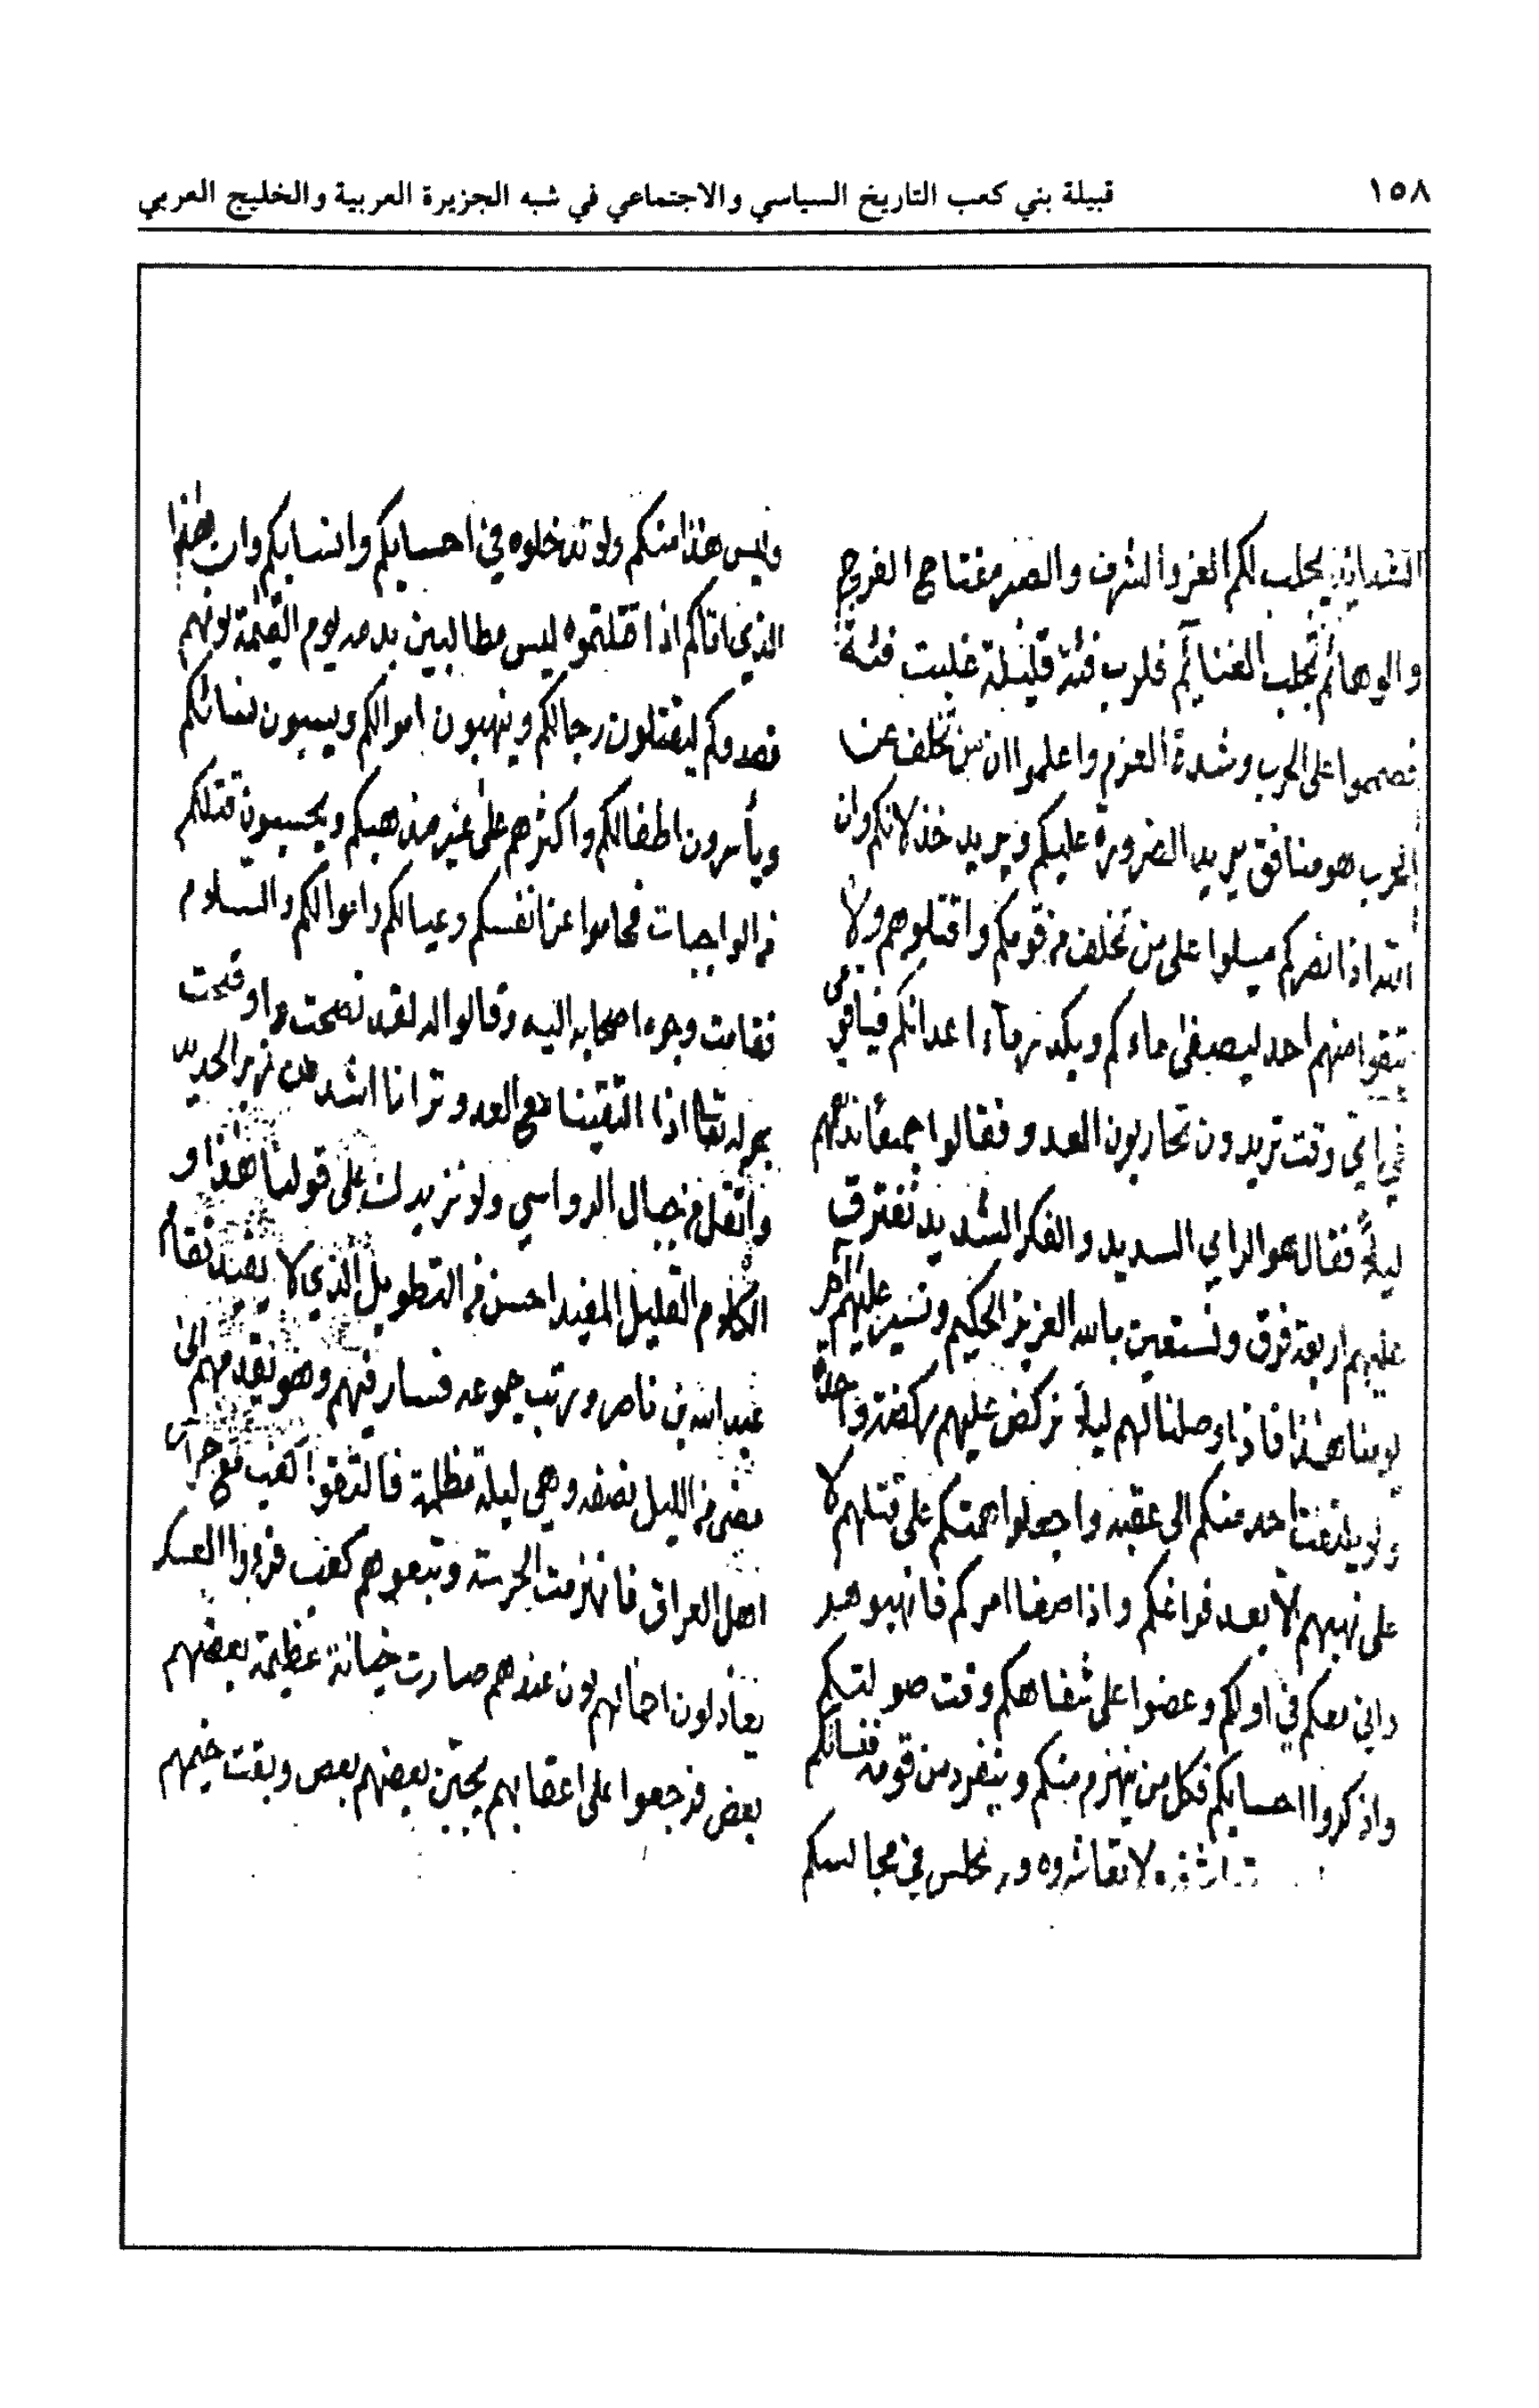 ١٥٨
قبيلة بني كعب التاريخ السياسي والاجتماعي في شبه الجزيرة العربية والخليج العربي
الشدايد يجلب لكم العز والشرف والصبر مفتاح الفرج
والوهائم تجلب الغنايم فلرب فئة قليلة غلبت فئة
فصمموا على الحرب وشدة العزم واعلموا ان من تخلف عن
الحرب هو منافق يريد الضرورة عليكم ويريد خذلانكم وان
الله اذا نصركم ميلوا على من تخلف من قومكم واقتلوهم ولا
تبقوا منهم احد ليصفى ماءكم ويكدر ماء اعدائكم
في اي وقت تريدون تحاربون العدو فقالوا جمعا
ليلاً فقال هو الراي السديد والفكر الشديد تفترق
عليهم اربعة فرق ونستعين بالله العزيز الحكيم ونسير عليهم آخر
يومنا هذا فاذا وصلنا لهم ليلاً نركض عليهم ركضة واحدة
ولا يلتفت احد منكم الى عقبه واجعلوا همتكم على قتلهم لا
على نهبهم الا بعد فراغكم واذا صفا امركم فانهبوا
واني معكم في اولكم وعضوا على شفاهكم وقت صولتكم
واذكروا احسابكم فكل من ينهزم منكم وينفرد من قومه
لا تعاشروه ولا يجلس في مجالسكم
وليس هذا منكم ولا تدخلوه في احسابكم وانسابكم وان هذا
الذي اتاكم اذا قتلتموه ليس مطالبين بدمه يوم القيمة لانهم
قصدوكم ليقتلون رجالكم وينهبون اموالكم ويسبون نسائكم
ويأسرون اطفالكم واكثرهم على غير مذهبكم ويحسبون قتلكم
من الواجبات فحاموا عن انفسكم وعيالكم واموالكم والسلام
فقامت وجوه اصحابه اليه وقالوا له لقد نصحت وما وقحت
اذا التقينا مع العدو ترانا اشد من زبر الحديد
واثقل من جبال الرواسي ولا نزيدك على قولنا هذا و
الكلام القليل المفيد احسن من التطويل الذي لا يفيد فقام
عبد الله بن ناصر ورتب جموعه فسار فيهم وهو يقدمهم الى
مضى من الليل نصفه وهي ليلة مظلمة فالتقوا كعب مع
اهل العراق فانهزمت الحرسة وتبعوهم كعب فرءوا العسكر
يعادلون احمالهم عندهم صارت خيانة عظيمة بعضهم
بعض فرجعوا على اعقابهم يجبّن بعضهم بعض وبقت خيمهم